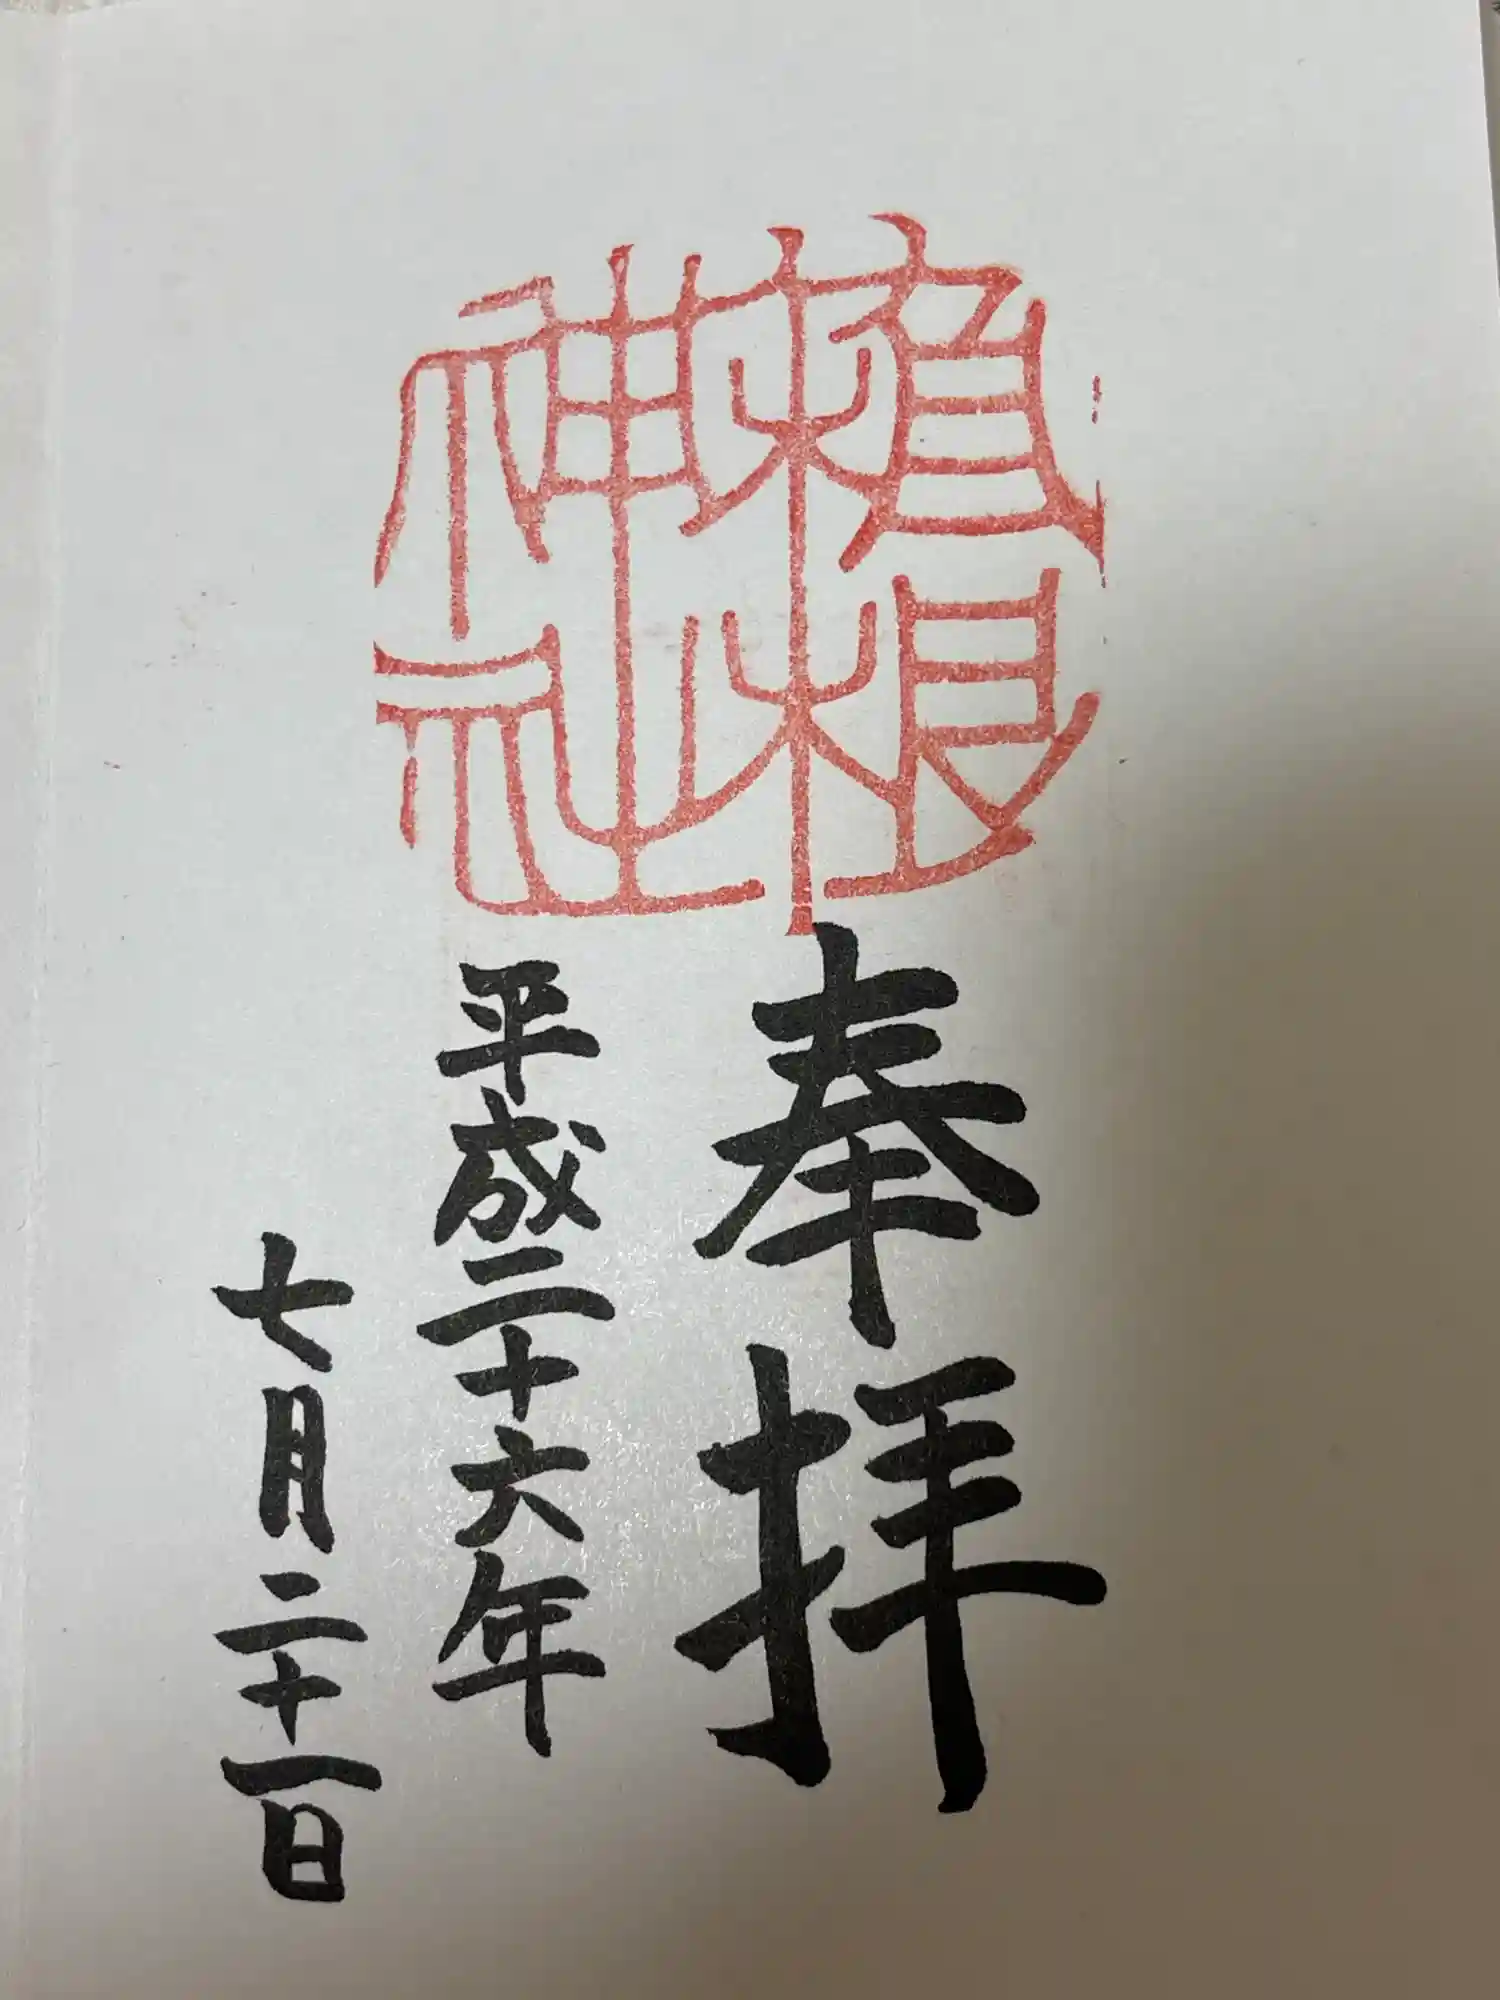 賴根
神社
奉拝
平成二十六年
七月二十一日